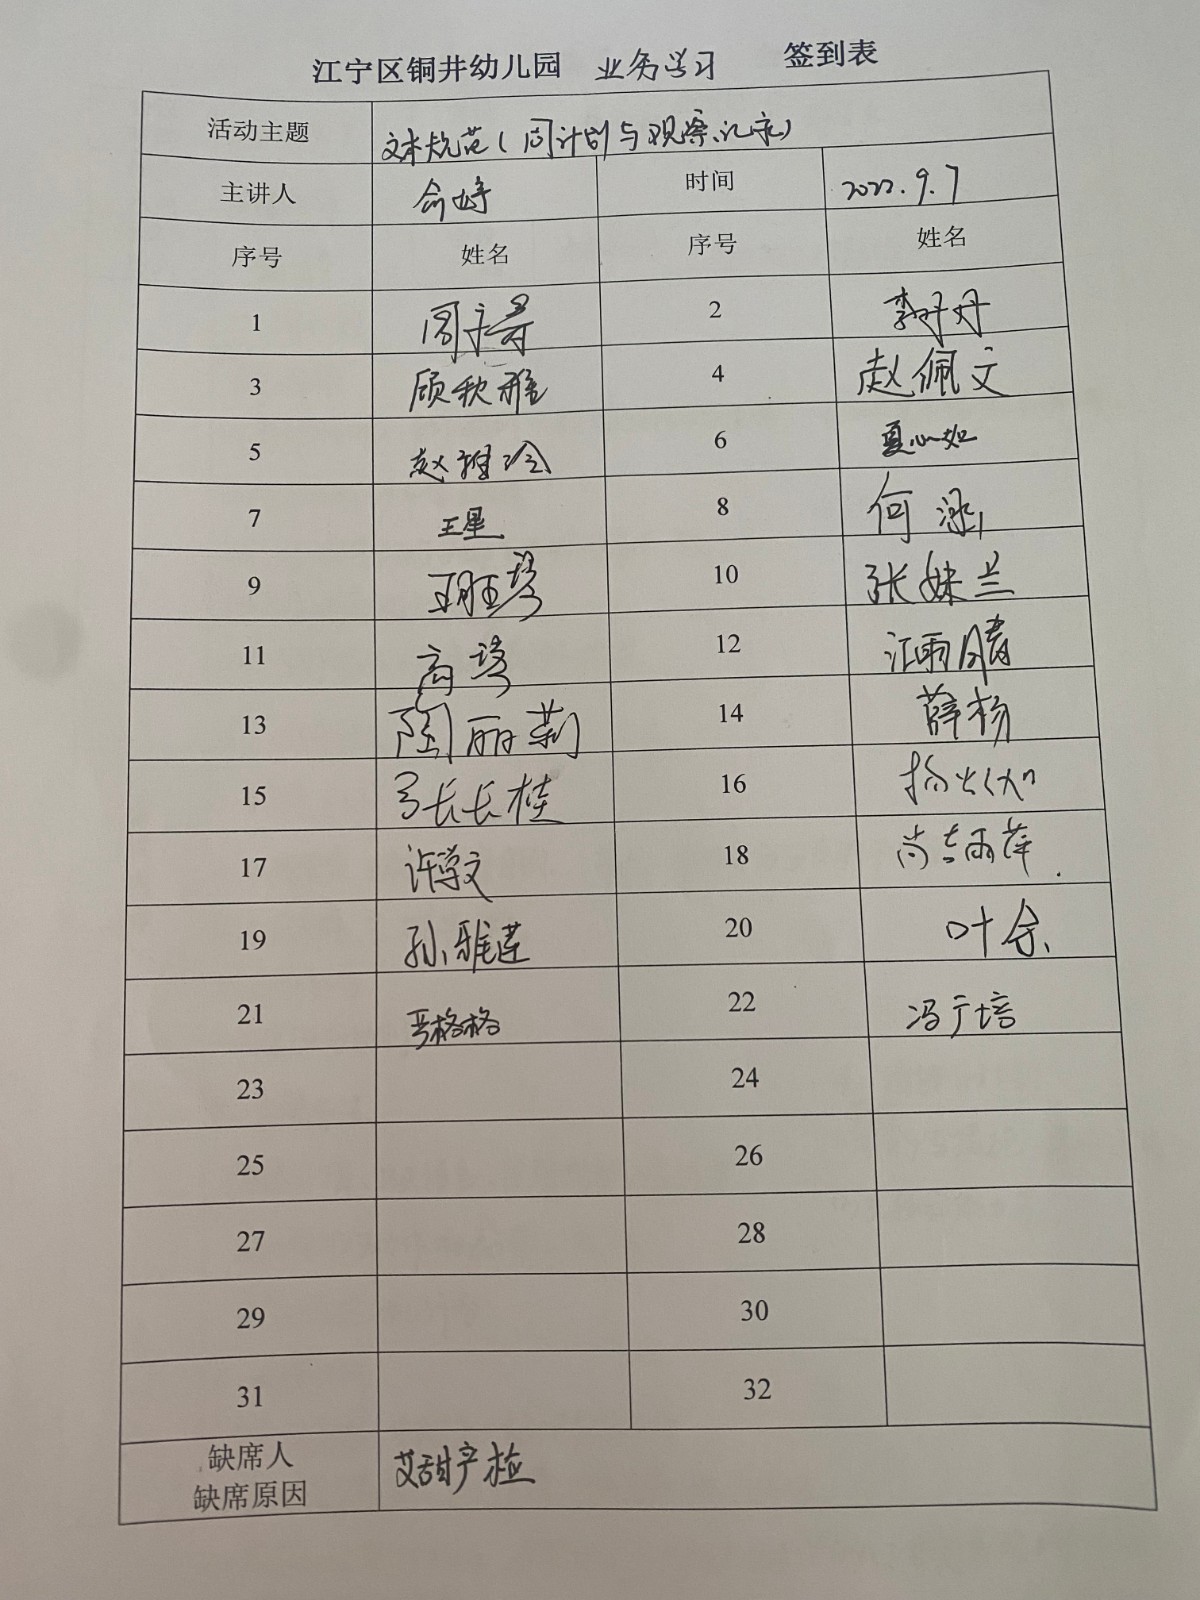 江宁区铜井幼儿园 业务学习 签到表
活动主题 文本规范(周计划与观察记录)
主讲人 俞婷 时间 2022.9.7
序号 姓名 序号 姓名
1 2 李丹丹
3 顾秋雅 4 赵佩文
5 赵雅玲 6 夏心如
7 王星 8 何泳
9 10 张妹兰
11 高琴 12 江雨晴
13 陶丽莉 14 薛杨
15 张长桂 16
17 许学文 18 尚雨萍
19 孙雅莲 20 叶余
21 严格格 22 冯广培
23 24
25 26
27 28
29 30
31 32
缺席人 艾甜产检
缺席原因